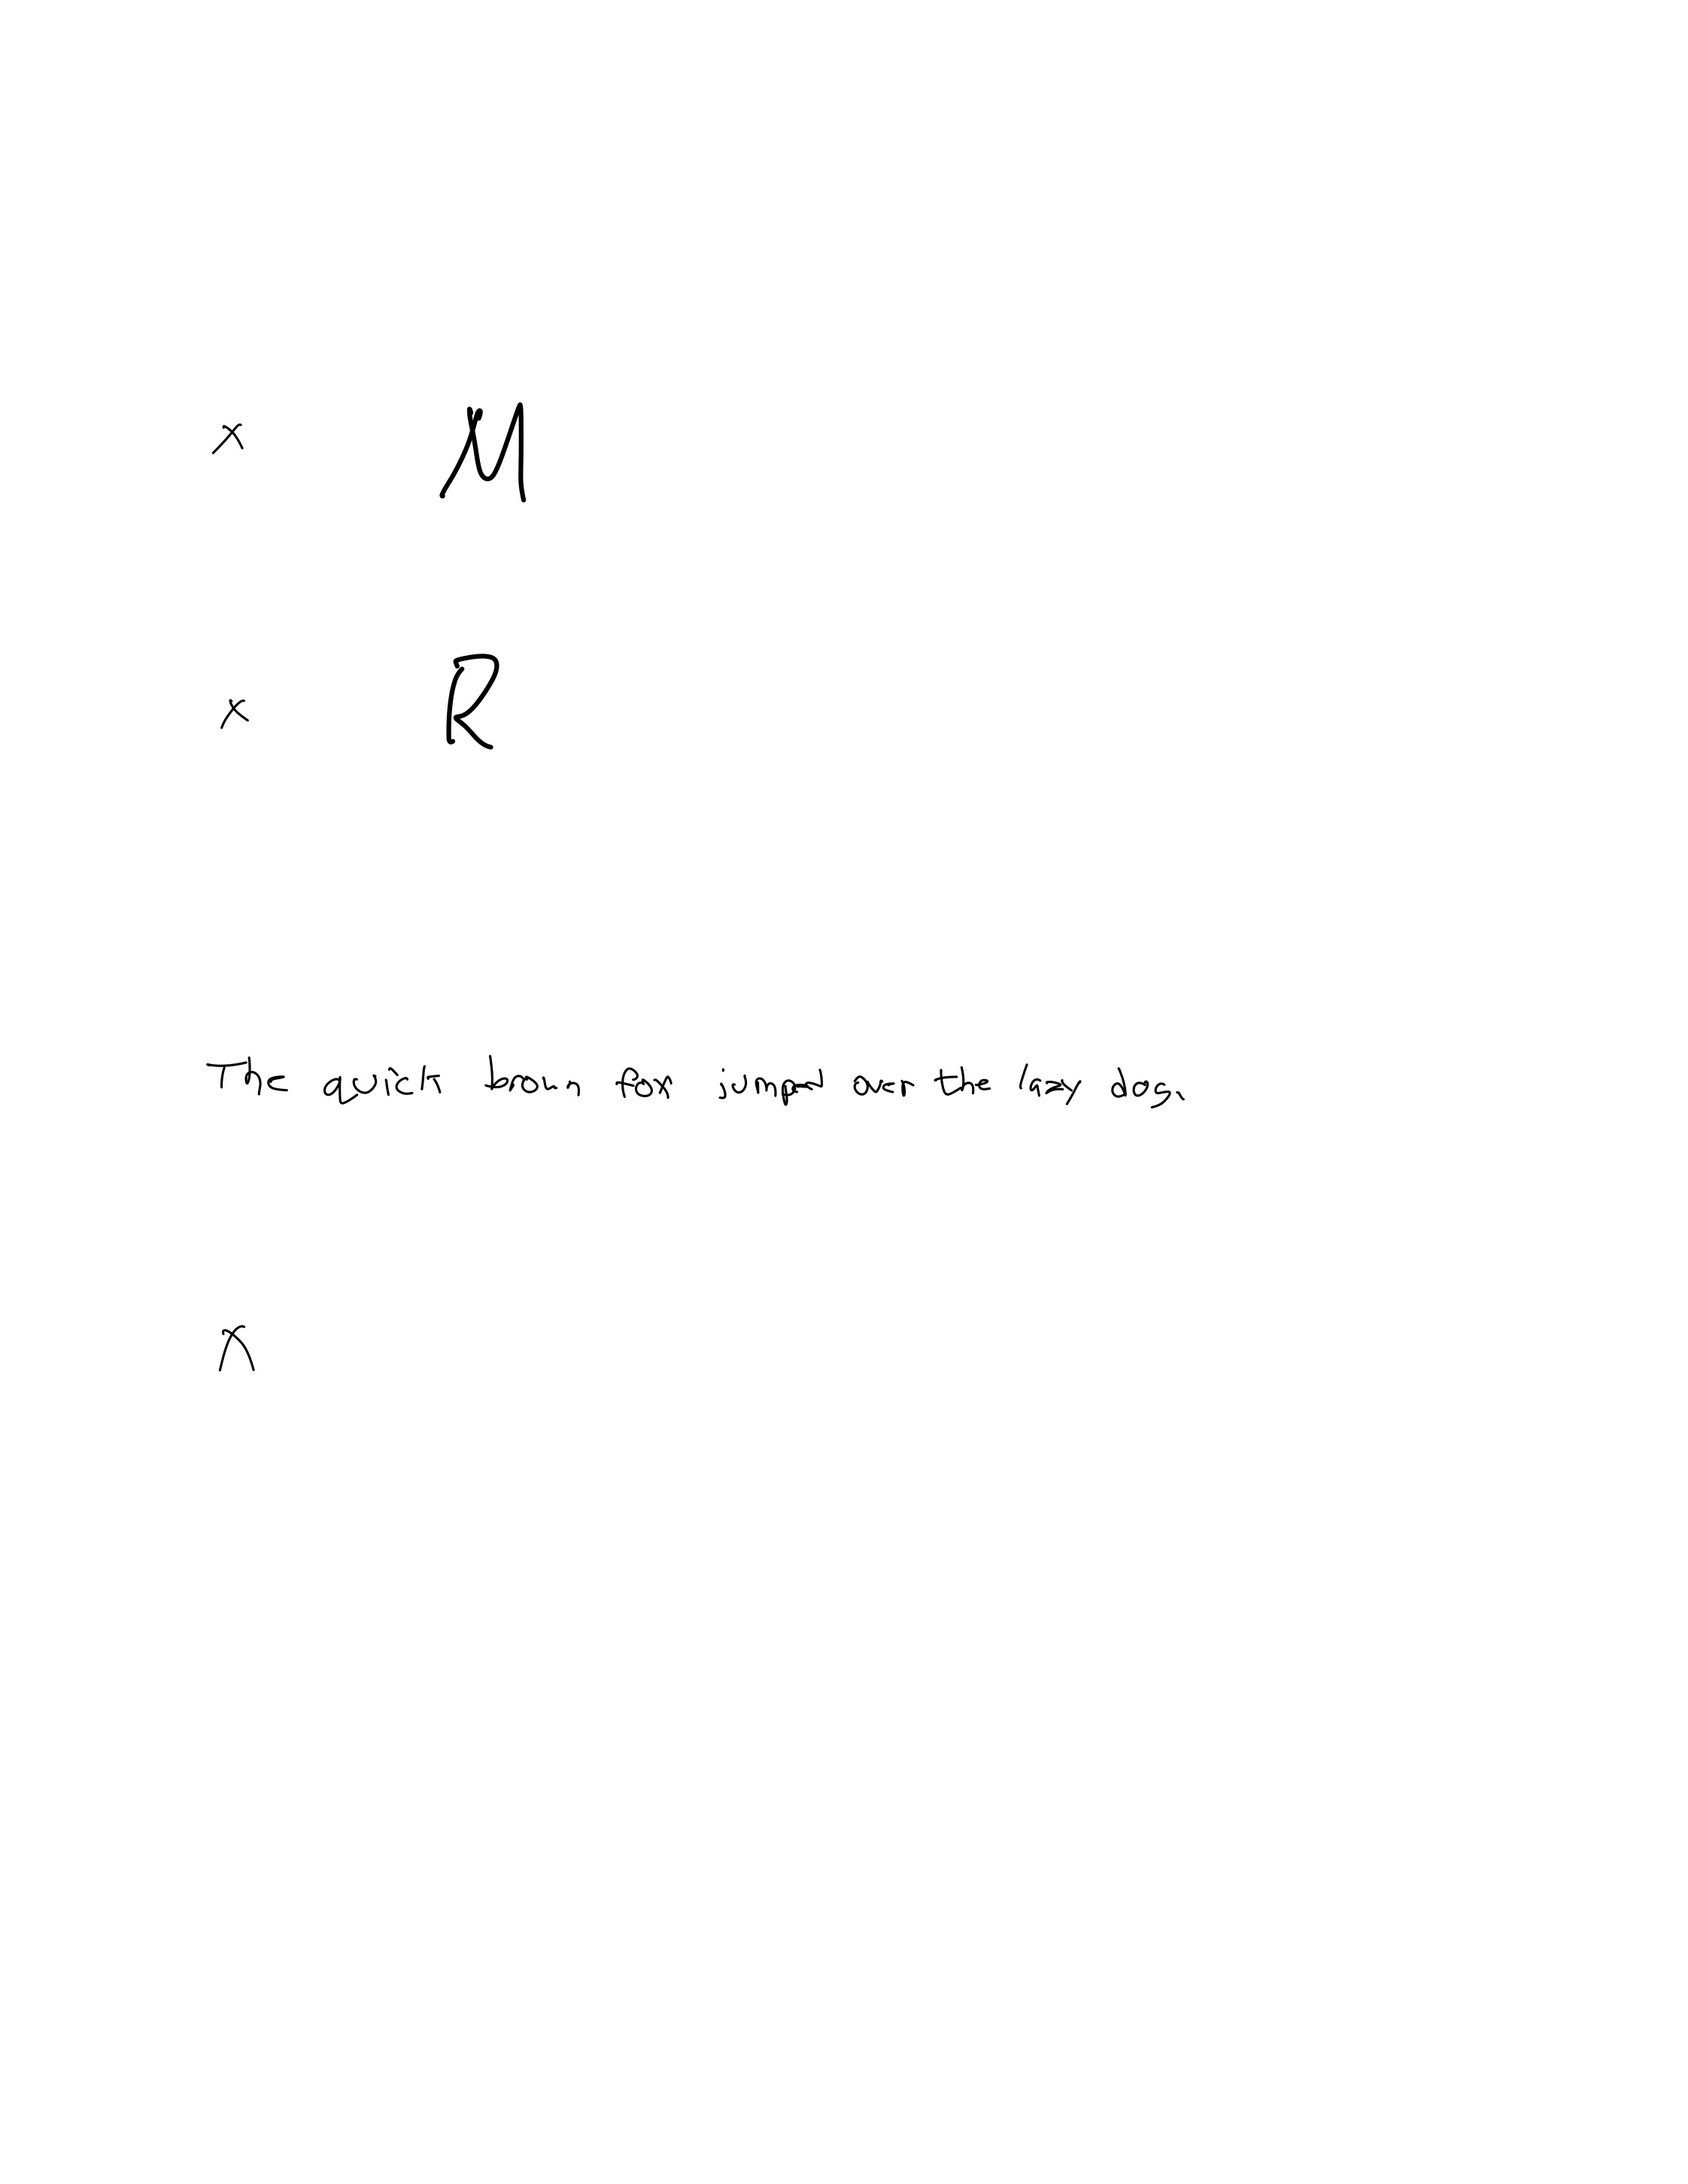 x M
x R
The quick brown fox jumped over the lazy dog.
x